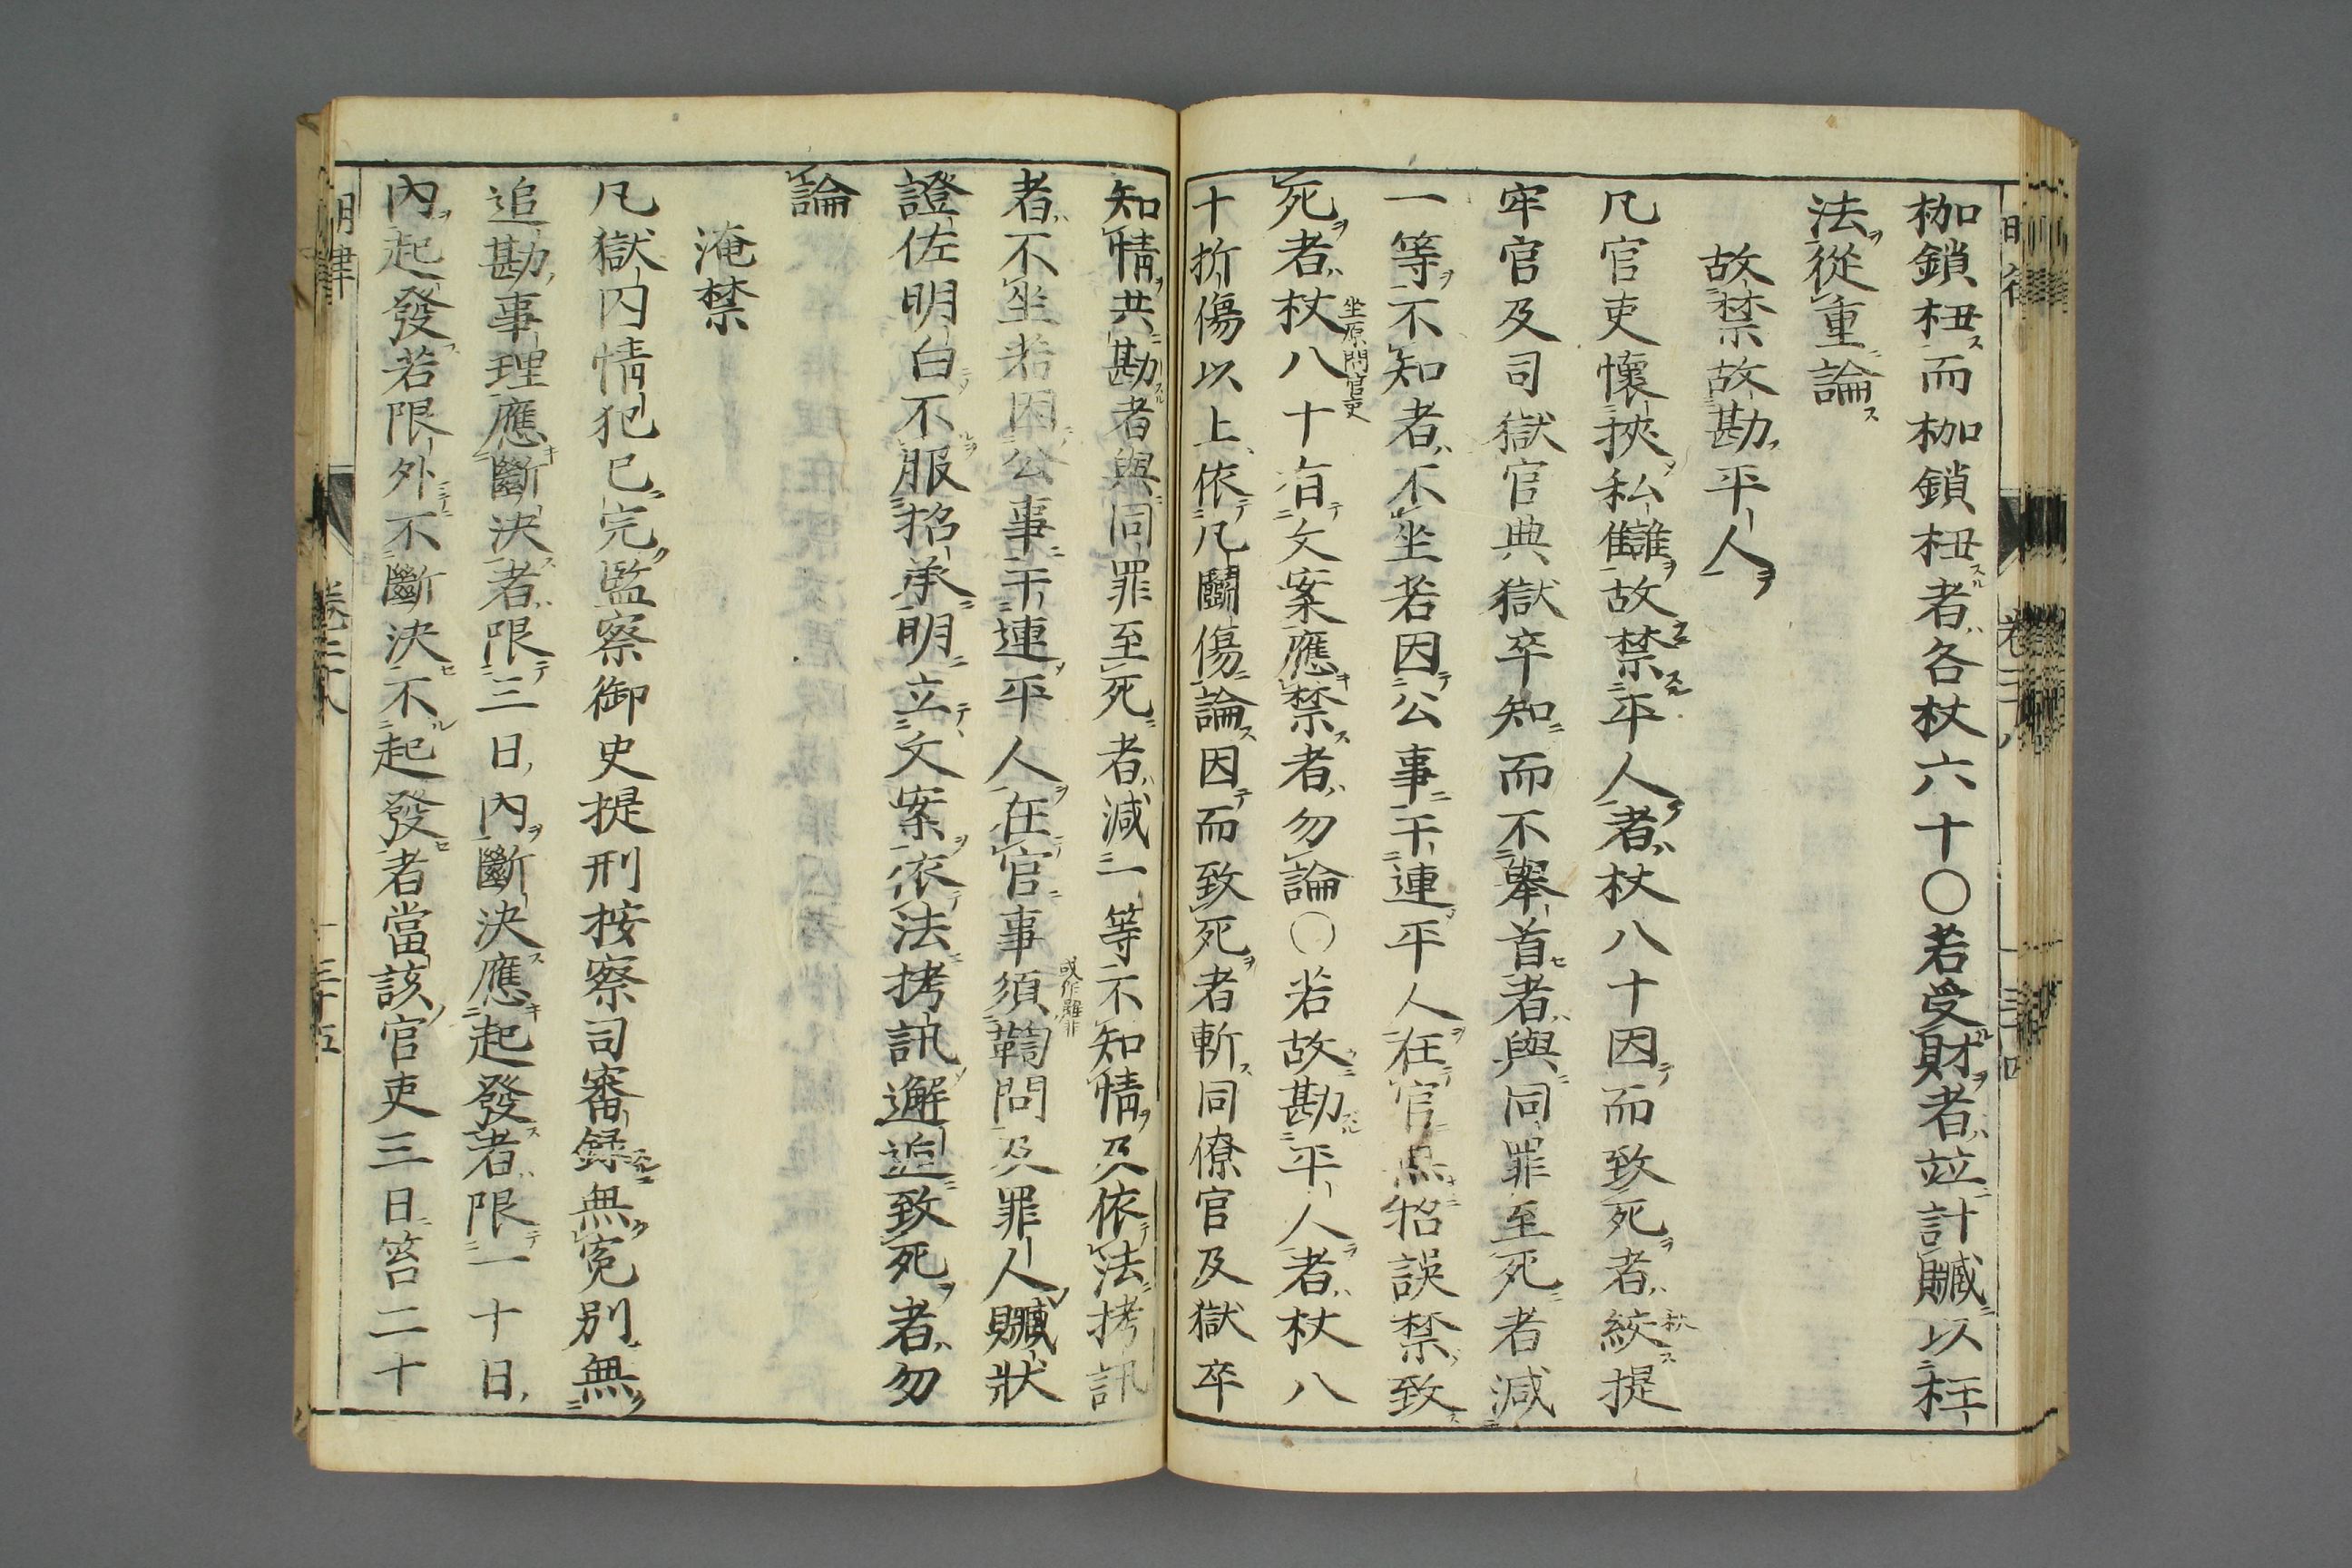 枷鎖杻而枷鎖杻者各杖六十○若受財者竝計贓以枉
法從重論
故禁故勘平人
凡官吏懷挾私讎故禁平人者杖八十因而致死者絞提
牢官及司獄官典獄卒知而不舉首者與同罪至死者減
一等不知者不坐若因公事干連平人在官無招誤禁致
死者杖八十有文案應禁者勿論○若故勘平人者杖八
坐原問官吏
十折傷以上依凡鬬傷論因而致死者斬同僚官及獄卒
知情共勘者與同罪至死者減一等不知情及依法拷訊
者不坐若因公事干連平人在官事須鞫問及罪人贓狀
或作雖非
證佐明白不服招承明立文案依法拷訊邂逅致死者勿
論
淹禁
凡獄囚情犯已完監察御史提刑按察司審録無寃別無
追勘事理應斷決者限三日內斷決應起發者限一十日
內起發若限外不斷決不起發者當該官吏三日笞二十
明律
卷二十八
三十五